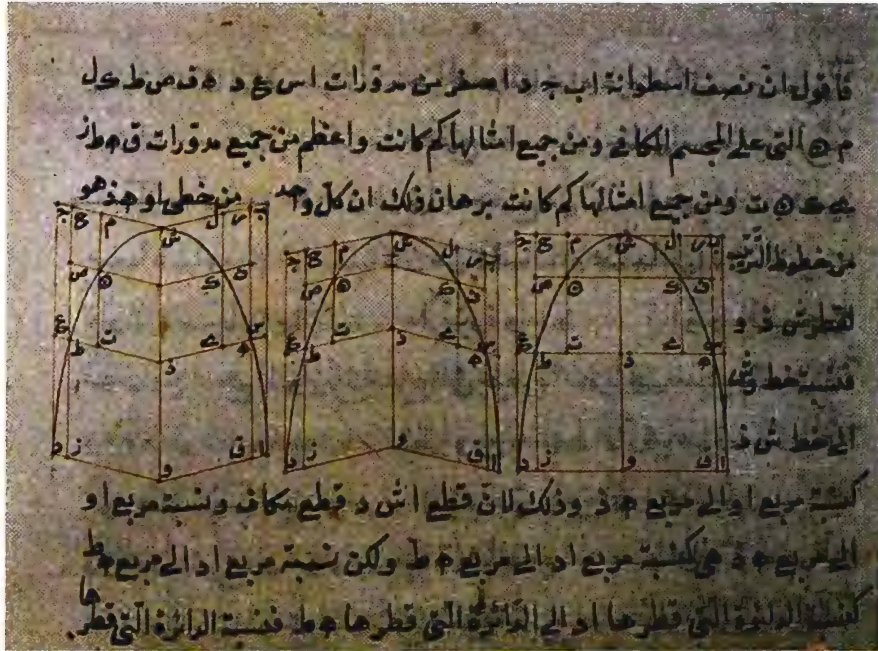 فاقول ان نصف اسطوانة اب ج د اصغر من مدورات اس ع د ه ف ص ط ك ل
م ن التي على المجسم المكافي ومن جميع امثالها كم كانت واعظم من جميع مدورات ق ه ط ز
ت ومن جميع امثالها كم كانت برهان ذلك ان كل واحد من خطى او ه ذ هو
من خطوط الترتيب
لقطر ش ذ و
فنسبة خط وش
الى خط ش ذ
كنسبة مربع او الى مربع ه ذ وذلك لان قطع اش د قطع مكاف ونسبة مربع او
الى مربع ه ذ هى كنسبة مربع اد الى مربع ه ط ولكن نسبة مربع اد الى مربع ه ط
كنسبة الدائرة التى قطرها اد الى الدائرة التى قطرها ه ط فنسبة الدائرة التى قطرها